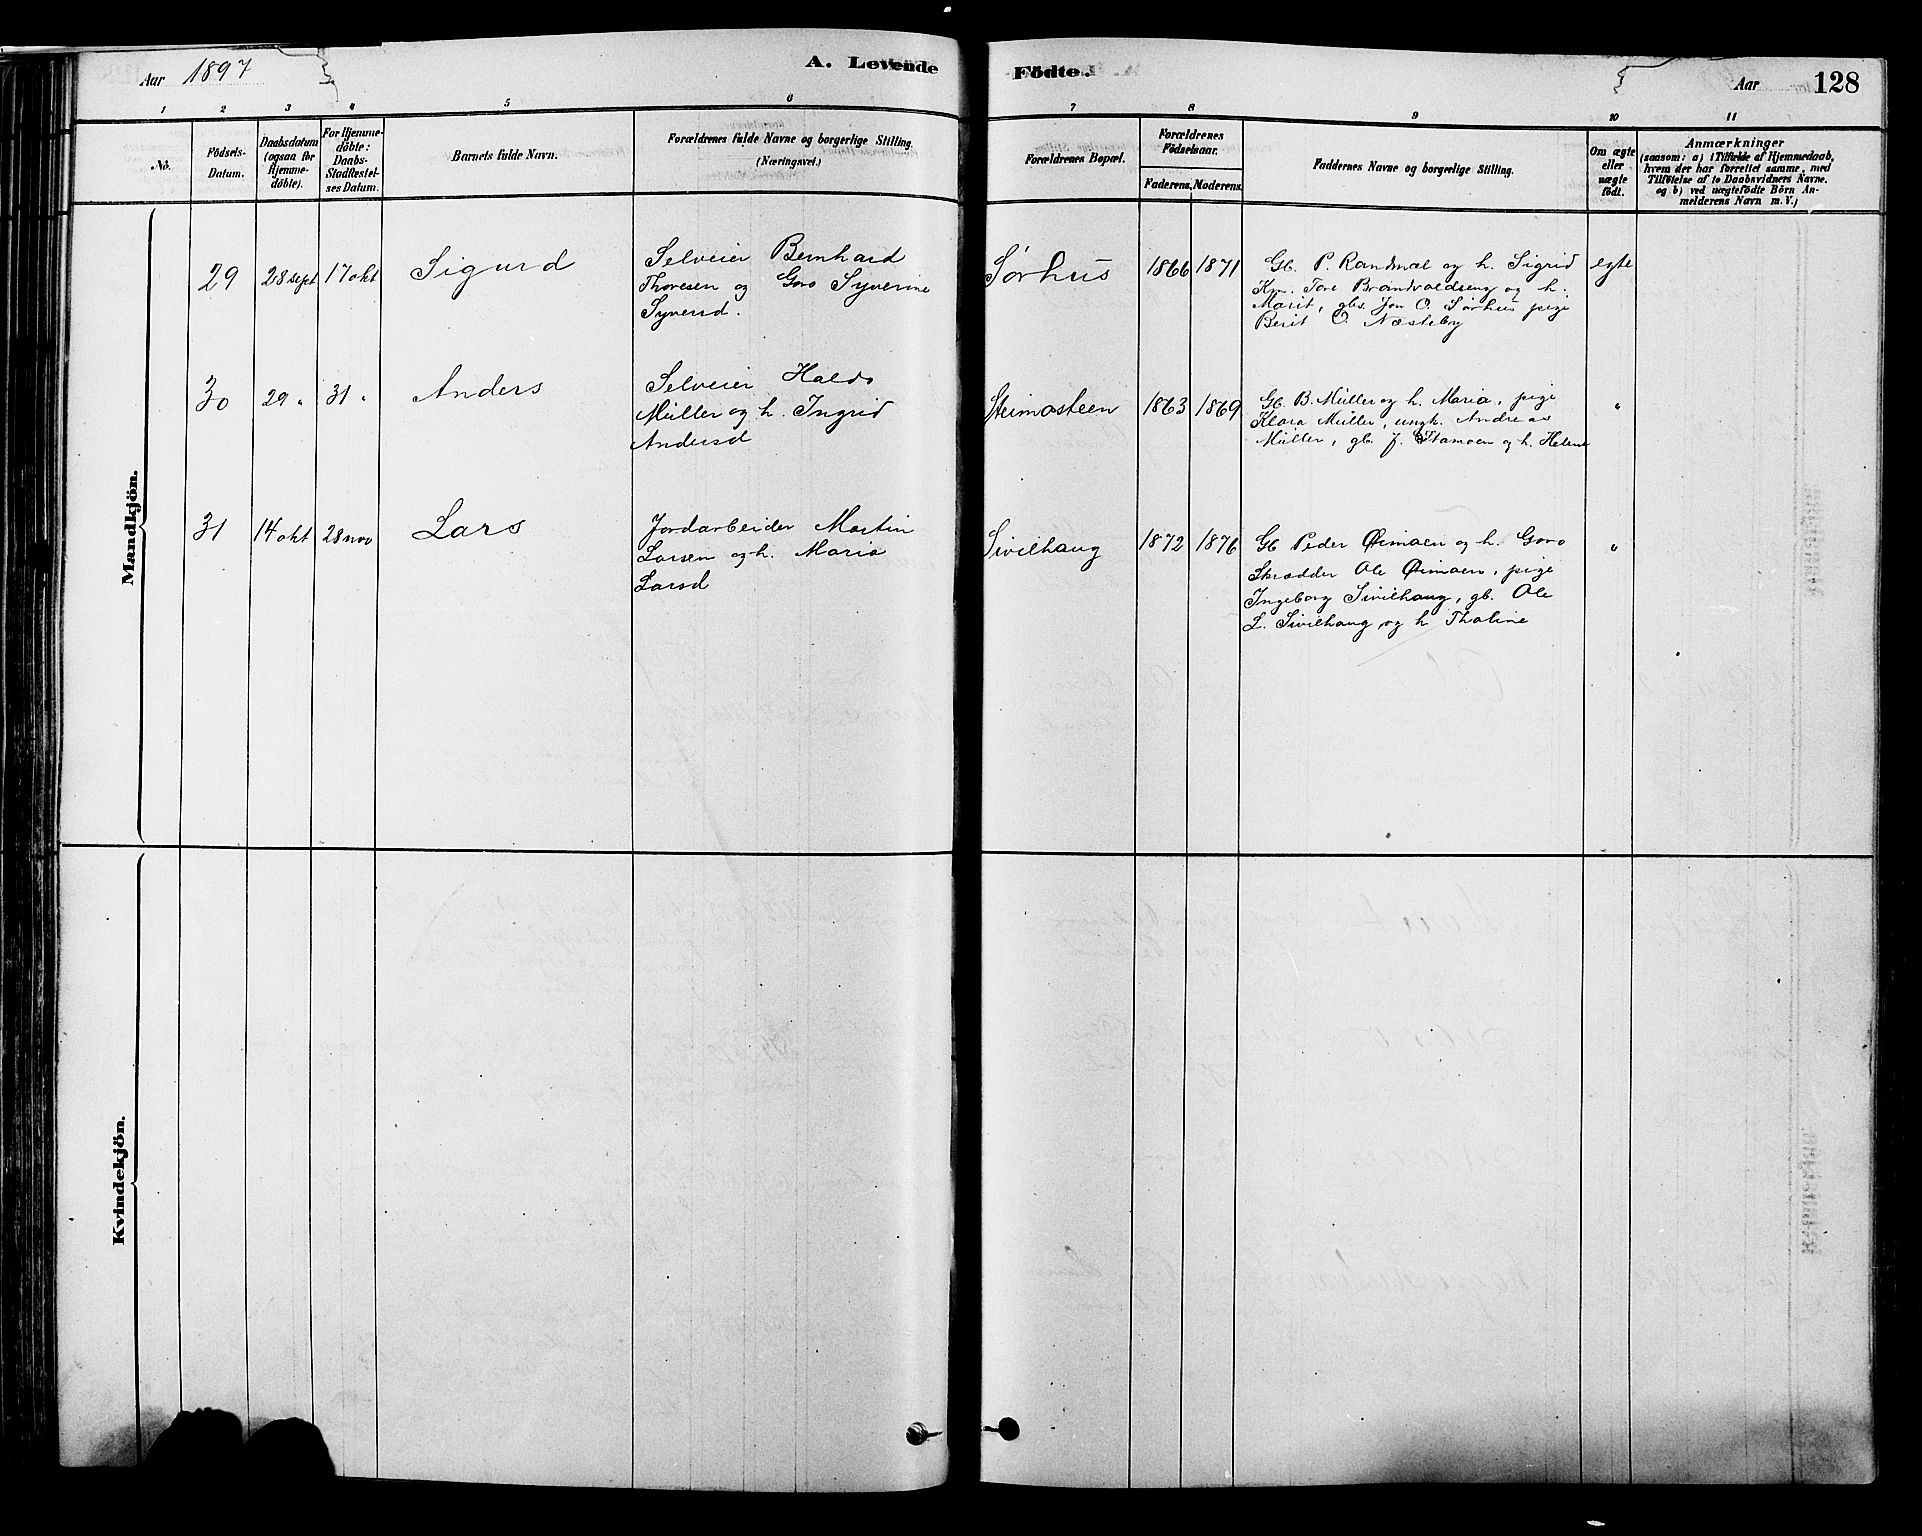 Aar 1897
A. Levende
Födte.
Aar 128
1 2 3 4 5 6
7 8 9 10 11
No.
Födsels-
Datum.
Daabsdatum
(ogsaa for
Hjemme-
döbte).
For Hjemme-
döbte:
Daabs-
Stadfæstel-
ses Datum.
Barnets fulde Navn.
Forældrenes fulde Navne og borgerlige Stilling.
(Næringsvei.)
Forældrenes Bopæl.
Forældrenes
Födselsaar.
Faderens. Moderens.
Faddernes Navne og borgerlige Stilling.
Om ægte
eller
uægte
födt.
Anmærkninger
(saasom: a) i Tilfælde af Hjemmedaab,
hvem der har forrettet samme, med
Tilföielse af to Daabsvidners Navne.
og b) ved uægtefödte Börn An-
melderens Navn m. V.)
Mandkjön.
29 28 sept 17 okt Sigurd
Selveier Bernhard
Thoresen og Goro Syverine
Syversd.
Sørhus 1866 1871
Gb. P. Randmæl og h. Sigrid
Km. Tore Brandvoldseng og h.
Marit, gbs. Jon O. Sørhus pige
Berit O. Næsteby
egte
30 29 " 31 " Anders
Selveier Haldo
Müller og h. Ingrid
Andersd
Steimosteen 1863 1869
Gb. B. Müller og h. Maria, pige
Klara Müller, ungk. Andreas
Müller, gb. J. Stamoen og h. Helene
"
31 14 okt 28 nov Lars
Jordarbeider Martin
Larsen og h. Maria
Larsd
Sivilhaug 1872 1876
Gb Peder Øimoen og h. Goro
Skrædder Ole Øimoen, pige
Ingeborg Sivilhaug, gb. Ole
L. Sivilhaug og h Thaline
"
Kvindekjön.